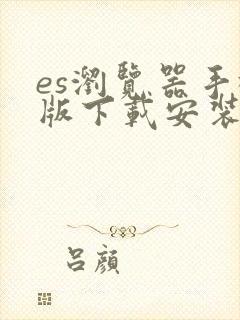 es瀏覽器手
版下載安裝
呂顏